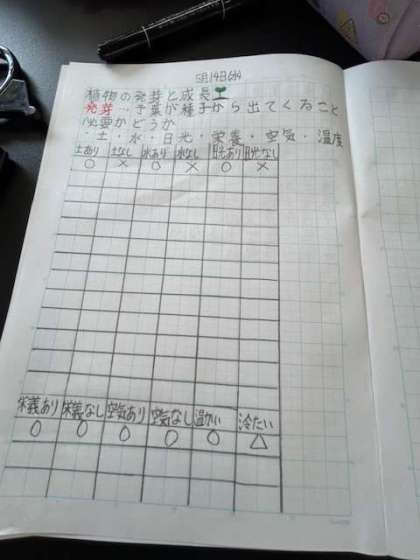 5月14日6校
植物の発芽と成長
発芽…子葉が種子から出てくること
必要かどうか
・土・水・日光・栄養・空気・温度
土あり 土なし 水あり 水なし 日光あり 日光なし
○ × ○ × ○ ×
栄養あり 栄養なし 空気あり 空気なし 温かい 冷たい
○ ○ ○ ○ ○ △